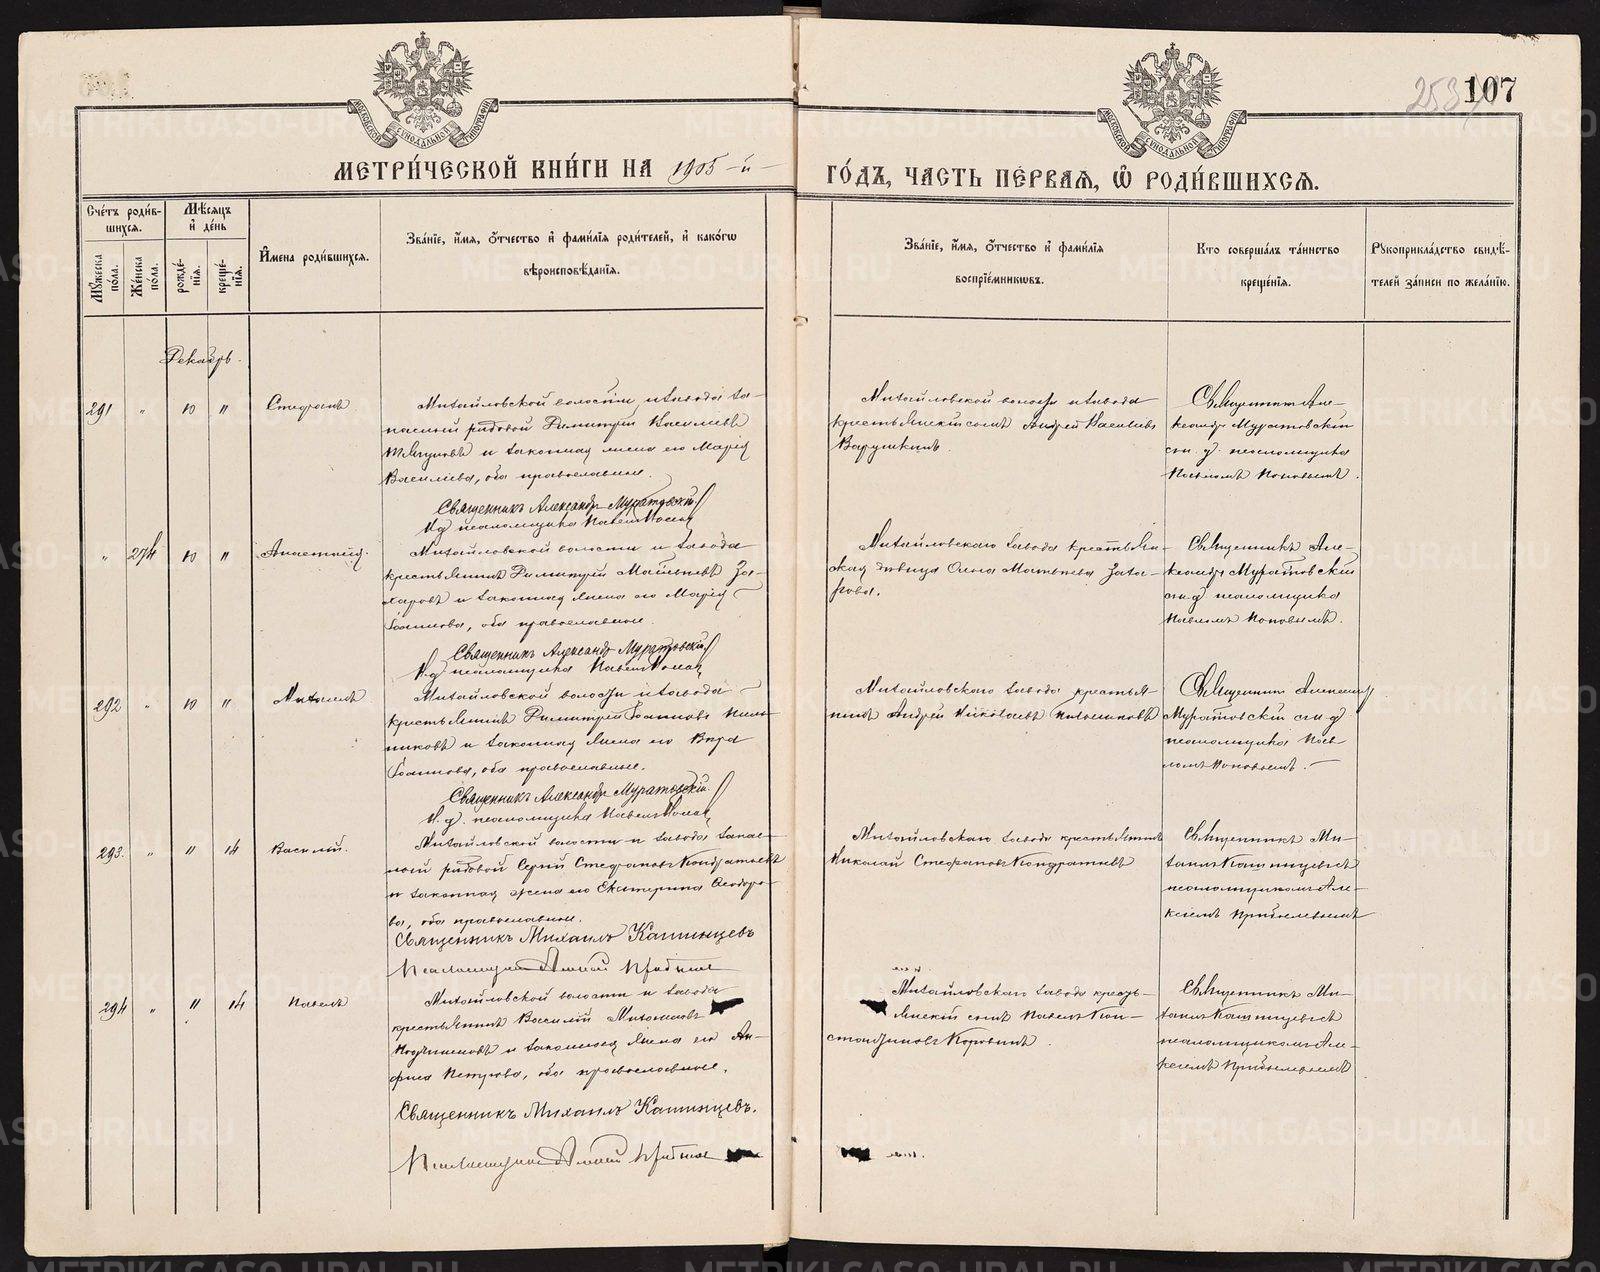 107
253
МОСКОВСКОЙ СѴНОДАЛЬНОЙ ТИПОГРАФІИ
МОСКОВСКОЙ СѴНОДАЛЬНОЙ ТИПОГРАФІИ
МЕТРИ́ЧЕСКОЙ КНИ́ГИ НА 1905-й
ГО́ДЪ, ЧАСТЬ ПЕ́РВАЯ, Ѡ РОДИ́ВШИХСЯ.
Сче́тъ роди́в-
шихся.
Мѣ́сяцъ
и де́нь
Му́жеска по́ла.
Же́нска по́ла.
рожде́-
нія.
креще́-
нія.
И́мена роди́вшихся.
Зва́ніе, и́мя, о́тчество и фами́лія роди́телей, и како́гѡ
вѣроисповѣ́данія.
Зва́ніе, и́мя, о́тчество и фами́лія
воспріе́мникѡвъ.
Кто соверша́лъ та́инство
креще́нія.
Рукоприкла́дство свидѣ́-
телей за́писи по жела́нію.
Декабрь.
291 " 10 11 Стефанъ
Михайловской волости и завода за-
пасный рядовой Димитрій Василіевъ
и законная жена его Марія
Василіева, оба православные.
Священникъ Александръ Муратовскій
И. д. псаломщика Павелъ Попов
Михайловской волости и завода
крестьянскій сынъ Андрей Васильевъ
Варушкинъ.
Священник Але-
ксандр Муратовскій
с и. д. псаломщика
Павломъ Поповымъ.
" 274 10 11 Анастасія.
Михайловской волости и завода
крестьянинъ Димитрій Матѳіевъ За-
харовъ и законная жена его Марія
Іоаннова, оба православные.
Священникъ Александръ Муратовскій
И. д. псаломщика Павелъ Попов
Михайловскаго завода крестьян-
ская дѣвица Ольга Матвѣева Заха-
рова.
Священникъ Але-
ксандръ Муратовскій
с и. д. псаломщика
Павломъ Поповымъ.
292 " 10 11 Михаилъ
Михайловской волости и завода
крестьянинъ Димитрій Іоанновъ
и законная жена его Вѣра
Іоаннова, оба православные.
Священникъ Александръ Муратовскій
И. д. псаломщика Павелъ Попов
Михайловскаго завода крестья-
нинъ Андрей Николаевъ
Священник Александръ
Муратовскій с и. д.
псаломщика Пав-
ломъ Поповымъ.
293. " 11 14 Василій.
Михайловской волости и завода запас-
ный рядовой Сергій Стефановъ Кондратьевъ
и законная жена его Екатерина Ѳеодоро-
ва, оба православные.
Священникъ Михаилъ Капинцевъ
Псаломщикъ Алексій
Михайловскаго завода крестьянинъ
Николай Стефановъ Кондратьевъ
Священникъ Ми-
хаилъ Капинцевъ съ
псаломщикомъ Але-
ксіемъ
294 " 11 14 Павелъ
Михайловской волости и завода
крестьянинъ Василій Михаиловъ
и законная жена его Ан-
фиса Петрова, оба православные.
Священникъ Михаилъ Капинцевъ.
Псаломщикъ Алексій
Михайловскаго завода кресть-
янскій сынъ Павелъ Кон-
стантиновъ Коровинъ.
Священникъ Ми-
хаилъ Капинцевъ съ
псаломщикомъ Але-
ксіемъ
METRIKI.GASO-URAL.RU